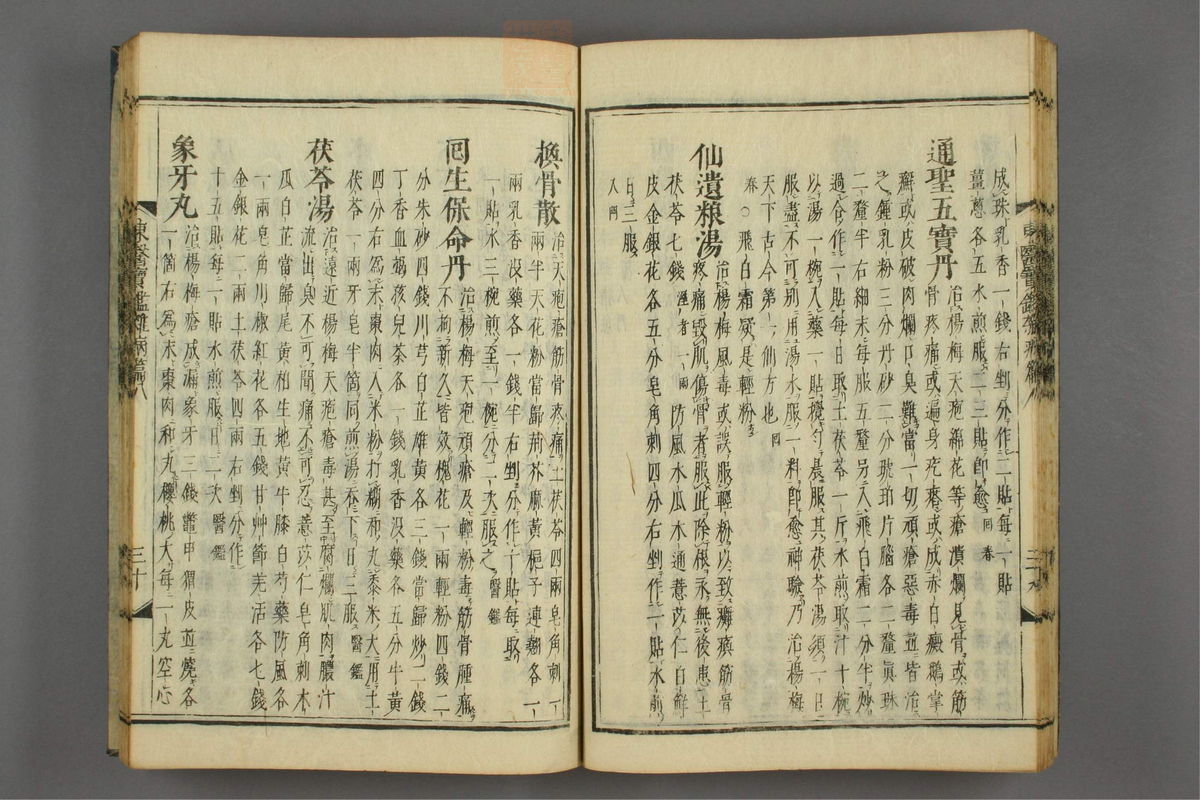 成珠乳香一錢右剉分作二貼每一貼
薑葱各五水煎服二三貼卽愈回春
通聖五寶丹治楊梅天疱綿花等瘡潰爛見骨或筋
骨疼痛或遍身疙瘩或成赤白癜鵝掌
癬或皮破肉爛口臭難當一切頑瘡惡毒並皆治
之鍾乳粉三分丹砂二分琥珀片腦各二釐眞珠
二釐半右細末每服五釐另入飛白霜二分半炒
過合作一貼每日取土茯苓一斤水煎取汁十椀
以湯一椀入藥一貼攪勻晨服其茯苓湯須一日
服盡不可別用湯水服一料卽愈神驗乃治楊梅
天下古今第一仙方也回
春○飛白霜疑是輕粉
仙遺粮湯治楊梅風毒或誤服輕粉以致癱瘓筋骨
疼痛毀肌傷骨者服此除根永無後患土
茯苓七錢濕者一兩防風木瓜木通薏苡仁白鮮
皮金銀花各五分皂角刺四分右剉作一貼水煎
日三服
入門
換骨散治天疱瘡筋骨疼痛土茯苓四兩皂角刺一
兩半天花粉當歸荊芥麻黃梔子連翹各一
兩乳香沒藥各一錢半右剉分作十貼每取
一貼水三椀煎至一椀分二次服之醫鑑
回生保命丹治楊梅天疱頑瘡及輕粉毒筋骨腫痛
不拘新久皆效槐花一兩輕粉四錢二
分朱砂四錢川芎白芷雄黃各三錢當歸炒二錢
丁香血竭孩兒茶各一錢乳香沒藥各五分牛黃
四分右爲末棗肉入米粉打糊和丸黍米大用土
茯苓一兩牙皂半箇同煎湯呑下日三服醫鑑
茯苓湯治遠近楊梅天疱瘡毒甚至腐爛肌肉膿汁
流出臭不可聞痛不可忍薏苡仁皂角刺木
瓜白芷當歸尾黃栢生地黃牛膝白芍藥防風各
一兩皂角川椒紅花各五錢甘艸節羌活各七錢
金銀花二兩土茯苓四兩右剉分作二
十五貼每一貼水煎服日二次醫鑑
象牙丸治楊梅瘡成漏象牙三錢鼈甲猬皮並燒各
一箇右爲末棗肉和丸櫻桃大每一丸空心
東醫寶鑑雜病篇八
三十